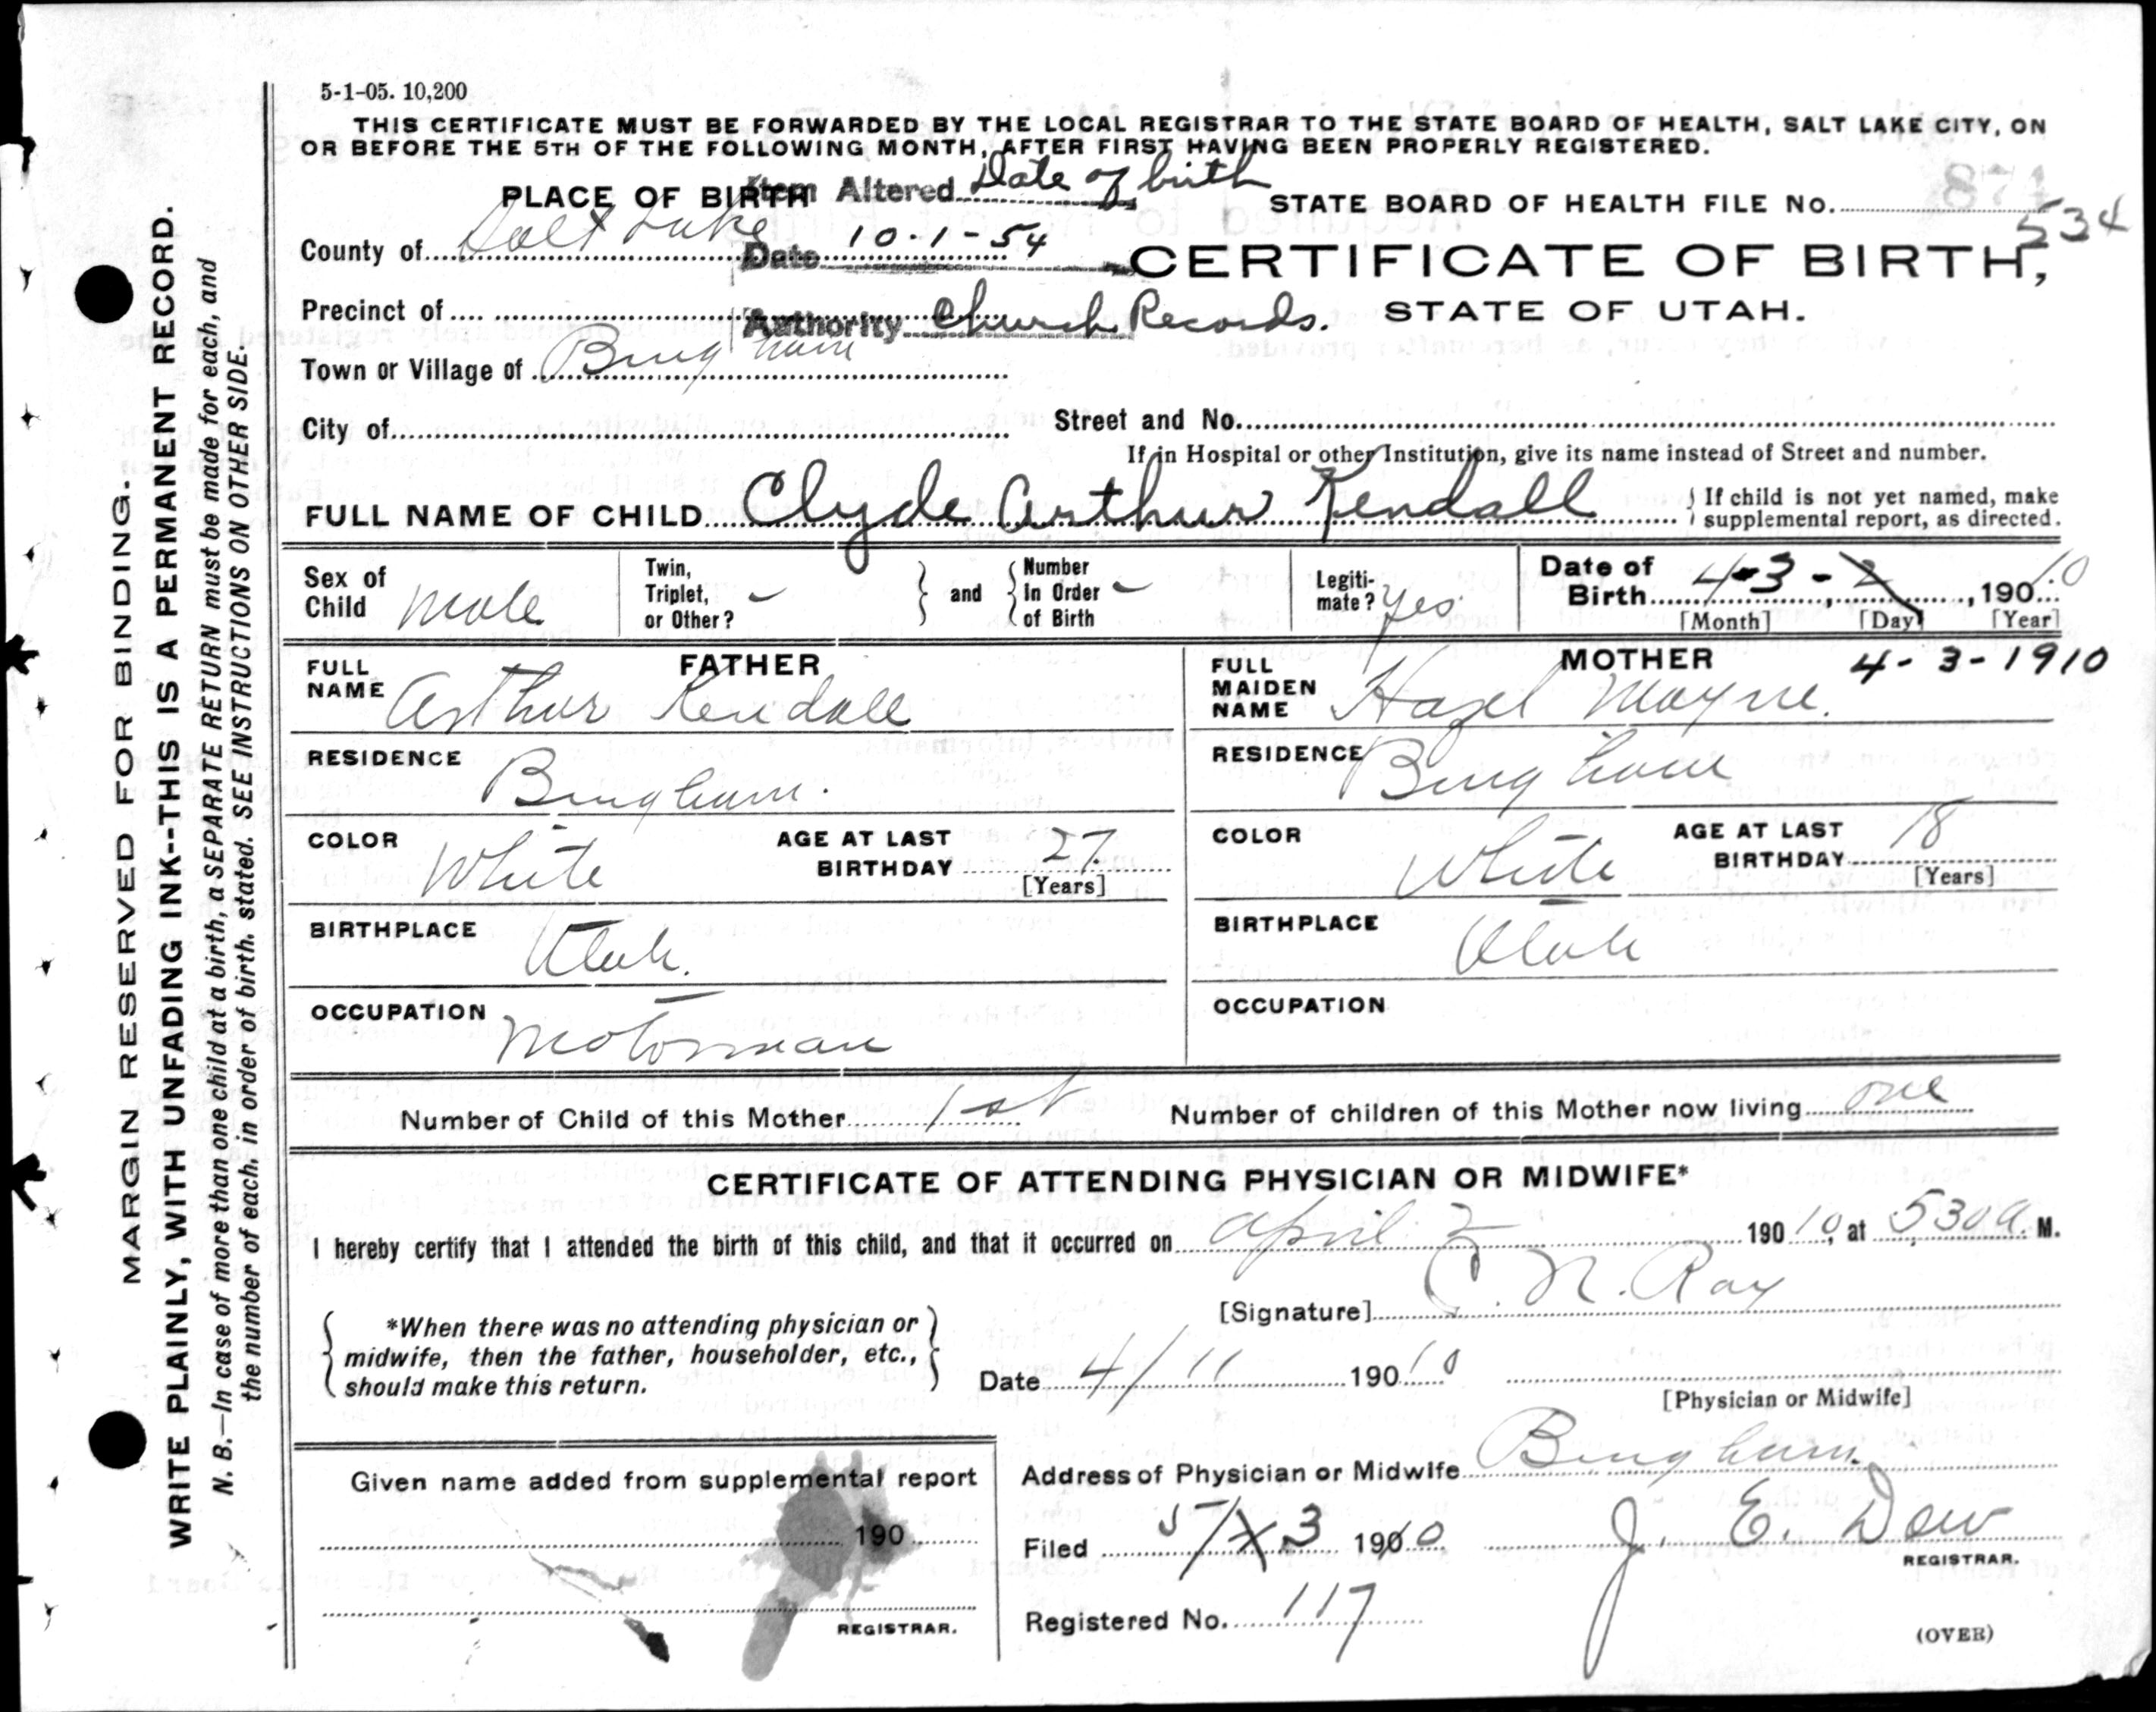 5-1-05. 10,200
THIS CERTIFICATE MUST BE FORWARDED BY THE LOCAL REGISTRAR TO THE STATE BOARD OF HEALTH, SALT LAKE CITY, ON
OR BEFORE THE 5TH OF THE FOLLOWING MONTH, AFTER FIRST HAVING BEEN PROPERLY REGISTERED.
PLACE OF BIRTH
Item Altered Date of birth
STATE BOARD OF HEALTH FILE No. 534
County of Salt Lake
Date 10-1-54
CERTIFICATE OF BIRTH,
Precinct of
Authority Church Records.
STATE OF UTAH.
Town or Village of Bingham
City of
Street and No.
If in Hospital or other Institution, give its name instead of Street and number.
FULL NAME OF CHILD Clyde Arthur Kendall
If child is not yet named, make
supplemental report, as directed.
Sex of
Child Male
Twin,
Triplet,
or Other?
and
Number
In Order
of Birth
Legiti-
mate? Yes
Date of
Birth 4-3-2, 1910
[Month] [Day] [Year]
4-3-1910
FATHER
FULL
NAME Arthur Kendall
RESIDENCE Bingham.
COLOR White
AGE AT LAST
BIRTHDAY 27
[Years]
BIRTHPLACE Utah.
OCCUPATION Motorman
MOTHER
FULL
MAIDEN
NAME Hazel Mayne.
RESIDENCE Bingham
COLOR White
AGE AT LAST
BIRTHDAY 18
[Years]
BIRTHPLACE Utah
OCCUPATION
Number of Child of this Mother 1st
Number of children of this Mother now living one
CERTIFICATE OF ATTENDING PHYSICIAN OR MIDWIFE*
I hereby certify that I attended the birth of this child, and that it occurred on April 2 190 10, at 530 a. M.
[Signature] N. Ray
*When there was no attending physician or
midwife, then the father, householder, etc.,
should make this return.
Date 4/11 190 10
[Physician or Midwife]
Given name added from supplemental report
190
REGISTRAR.
Address of Physician or Midwife Bingham.
Filed 5/3 1910
J. E. Dew
REGISTRAR.
Registered No. 117
(OVER)
MARGIN RESERVED FOR BINDING.
WRITE PLAINLY, WITH UNFADING INK--THIS IS A PERMANENT RECORD.
N. B.—In case of more than one child at a birth, a SEPARATE RETURN must be made for each, and
the number of each, in order of birth, stated. SEE INSTRUCTIONS ON OTHER SIDE.